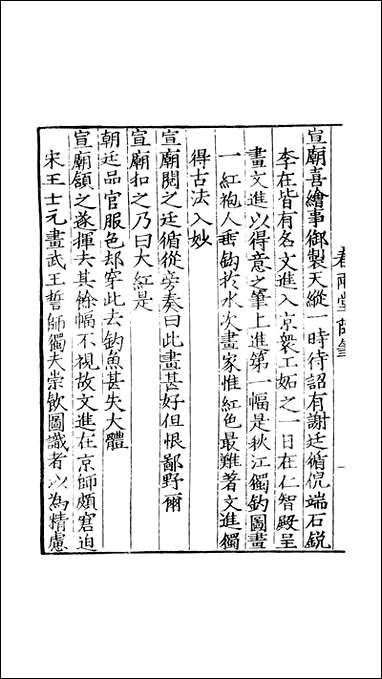 宣廟喜繪事御製天縱一時待詔有謝廷循倪端石銳
李在皆有名文進入京衆工妬之一日在仁智殿呈
畫文進以得意之筆上進第一幅是秋江獨釣圖畫
一紅袍人垂釣於水次畫家惟紅色最難著文進獨
得古法入妙
宣廟閱之廷循從旁奏曰此畫甚好但恨鄙野爾
宣廟扣之乃曰大紅是
朝廷品官服色却穿此去釣魚甚失大體
宣廟頷之遂揮去其餘幅不視故文進在京師頗窘迫
宋王士元畫武王誓師獨夫崇飲圖識者以為精慮